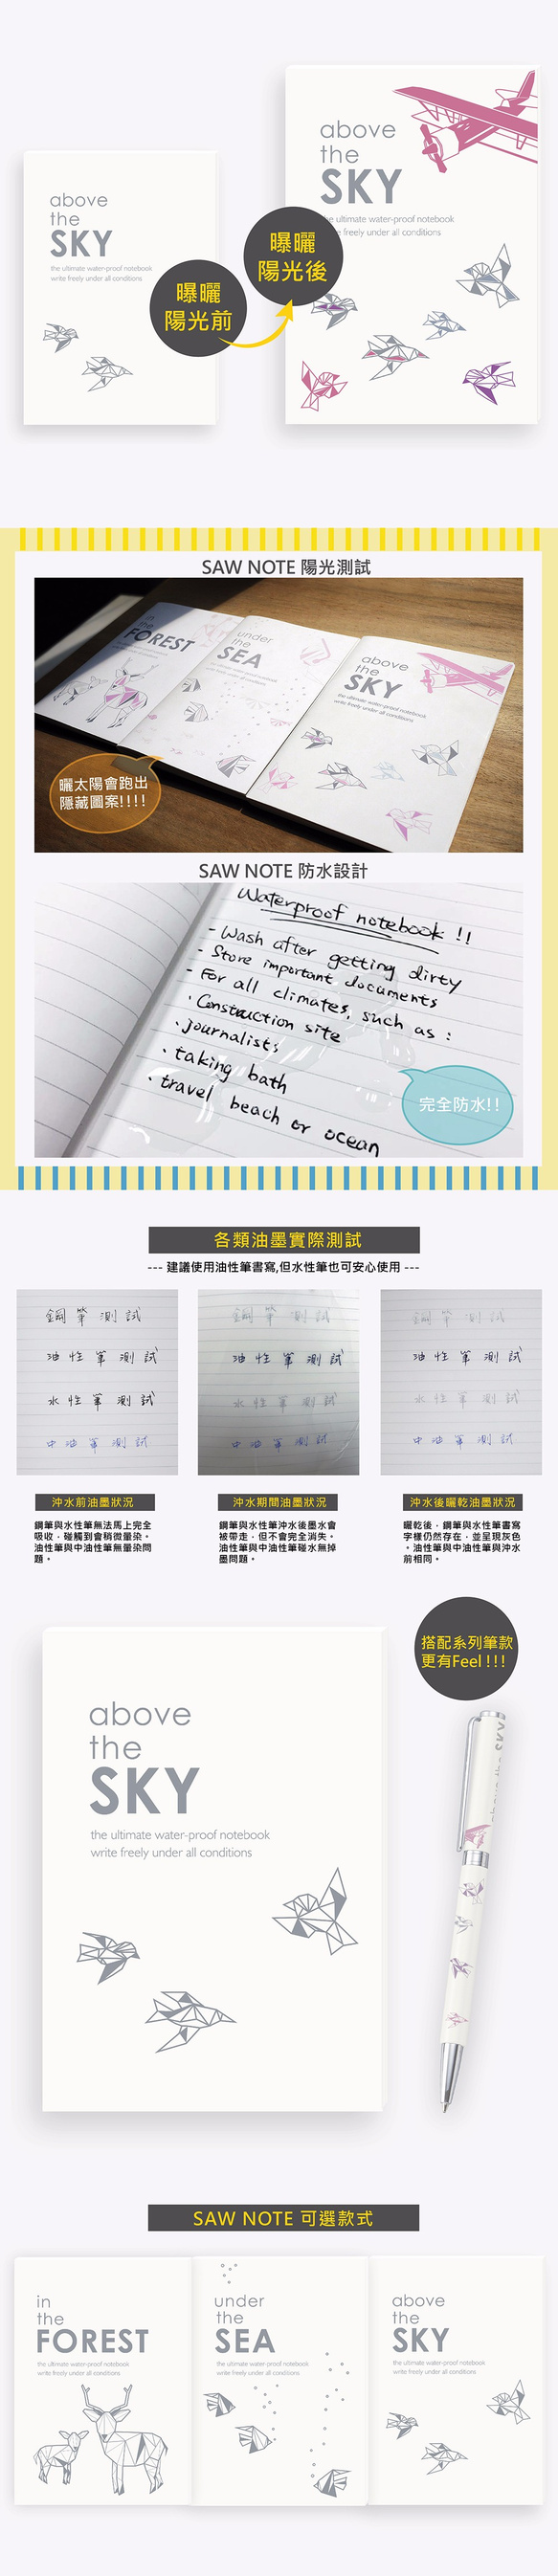 above
the
SKY
the ultimate water-proof notebook
write freely under all conditions
曝曬
陽光前
曝曬
陽光後
above
the
SKY
the ultimate water-proof notebook
write freely under all conditions
SAW NOTE 陽光測試
in
the
FOREST
under
the
SEA
above
the
SKY
the ultimate water-proof notebook
write freely under all conditions
曬太陽會跑出
隱藏圖案!!!!
SAW NOTE 防水設計
Waterproof notebook !!
- Wash after getting dirty
- Store important documents
- For all climates, such as :
· Construction site
· journalists
· taking bath
· travel beach or ocean
完全防水!!
各類油墨實際測試
--- 建議使用油性筆書寫,但水性筆也可安心使用 ---
鋼筆測試
油性筆測試
水性筆測試
中油筆測試
鋼筆測試
油性筆測試
水性筆測試
中油筆測試
鋼筆測試
油性筆測試
水性筆測試
中油筆測試
沖水前油墨狀況
鋼筆與水性筆無法馬上完全
吸收，碰觸到會稍微暈染。
油性筆與中油性筆無暈染問
題。
沖水期間油墨狀況
鋼筆與水性筆沖水後墨水會
被帶走，但不會完全消失。
油性筆與中油性筆碰水無掉
墨問題。
沖水後曬乾油墨狀況
曬乾後，鋼筆與水性筆書寫
字樣仍然存在，並呈現灰色
。油性筆與中油性筆與沖水
前相同。
搭配系列筆款
更有Feel !!!
above
the
SKY
the ultimate water-proof notebook
write freely under all conditions
above the SKY
SAW NOTE 可選款式
in
the
FOREST
the ultimate water-proof notebook
write freely under all conditions
under
the
SEA
the ultimate water-proof notebook
write freely under all conditions
above
the
SKY
the ultimate water-proof notebook
write freely under all conditions